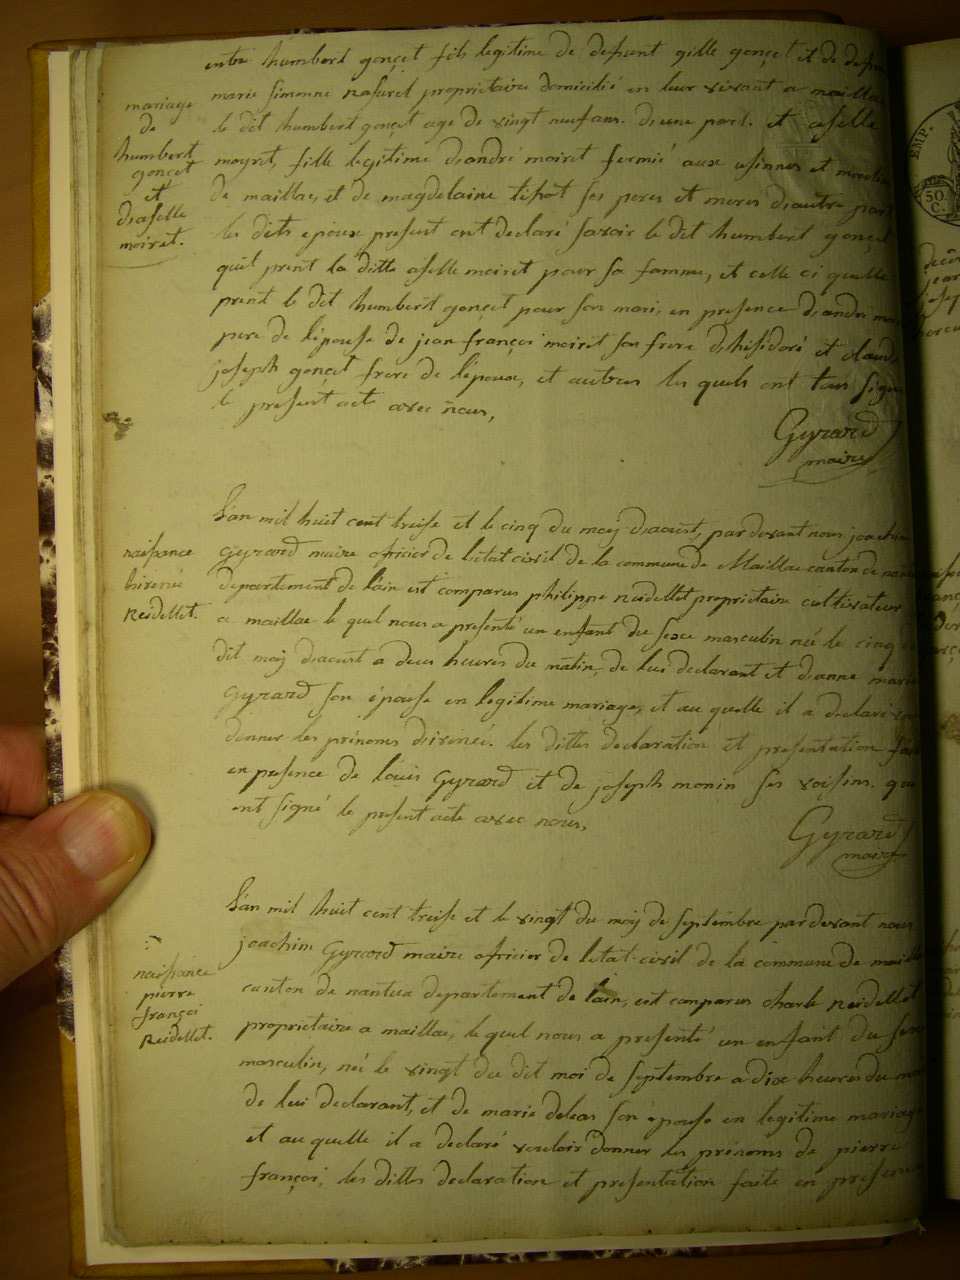 entre humbert gonçet fils legitime de defunt gille gonçet et de
marie simonne Rafurel propriétaire domicilié en leur vivant a maillac
mariage
de
humbert
gonçet
et
d'aselle
moiret.
le dit humbert gonçet age de vingt neuf ans. d'une part. et aselle
moyret, fille legitime d'andré moiret fermié aux usinnes et
de maillac, et de magdelaine tissot ses peres et meres d'autre part
les dits epoux present ont declaré savoir le dit humbert gonçet
quil prent la ditte aselle moiret pour sa famme, et celle ci quelle
prent le dit humbert gonçet pour son mari, en presence d'andré
pere de l'épouse de jean françoi moiret son frere d'hisidoré et claude
joseph gonçet frere de lépoux, et autres les quels ont tous signé
le present acte avec nous,
Gyrard
maire
L'an mil huit cent treise et le cinq du moy d'aoust, par devant nous joachim
naissance
Reidellet.
Gyrard maire oficier de letat civil de la commune de Maillac canton de
departement de lain est comparus philippe Reidellet proprietaire cultivateur
a maillac le quel nous a presenté un enfant du sexe masculin né le cinq
dit moy d'aoust a deux heures du matin, de lui declarant et d'anne marie
Gyrard son épouse en legitime mariage, et au quelle il a declaré
donner les prénoms d'irené. les dittes declaration et presentation
en presence de louis Gyrard et de joseph monin ses voisins. qui
ont signé le present acte avec nous,
Gyrard
maire
L'an mil huit cent treise et le vingt du moy de septembre par devant nous
naissance
pierre
françoi
Reidellet.
joachim Gyrard maire oficier de letat civil de la commune de
canton de nantua departement de lain, est comparus charle Reidellet
propriétaire a maillac, le quel nous a presenté un enfant du sexe
masculin, né le vingt du dit moi de septembre a dix heures du
de lui declarant, et de marie deléas son épouse en legitime mariage
et au quelle il a declaré vouloir donner les prénoms de pierre
françoi, les dittes declaration et presentation faite en presence
EMP.
50.
C.